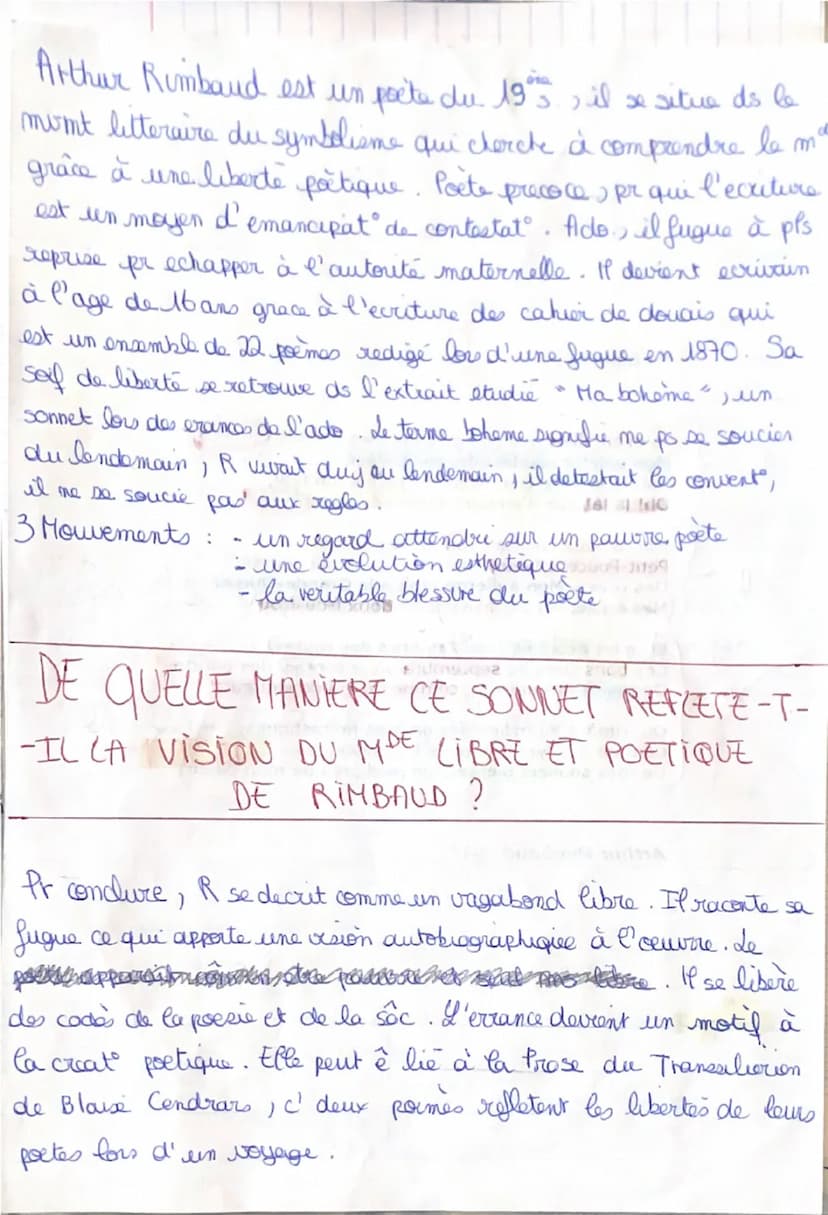 Arthur Rimbaud est un poète du 19ème s, il se situe ds le
mvmt litteraire du symbolisme qui cherche à comprendre le md
grâce à une liberté poètique. Poète precoce, pr qui l'ecriture
est un moyen d'emancipat° de contestat°. Ado, il fugue à pls
reprise pr echapper à l'autorité maternelle. Il devient ecrivain
à l'age de 16 ans grace à l'ecriture des cahier de douais qui
est un ensemble de 22 poèmes redigé lors d'une fugue en 1870. Sa
soif de liberté se retrouve ds l'extrait etudié "Ma bohème", un
sonnet lors des erances de l'ado. Le terme boheme signifie ne ps se soucier
du lendemain, R vivait duij au lendemain, il detestait les convent°,
il ne se soucie pas aux regles.
3 Mouvements : - un regard attendri sur un pauvre poète
- une évolution esthetique
- la veritable blessure du poète
DE QUELLE MANIERE CE SONNET REFLETE-T-
-IL LA VISION DU MDE LIBRE ET POETIQUE
DE RIMBAUD ?
Pr conclure, R se decrit comme un vagabond libre. Il raconte sa
fugue ce qui apporte une vision autobiographique à l'oeuvre. Le
. Il se libère
des codes de la poesie et de la sôc. L'errance devient un motif à
la creat° poetique. Elle peut ê lié à la Prose du Transsiberien
de Blaise Cendrars, c' deux poemes refletent les libertés de leurs
poetes lors d'un voyage.